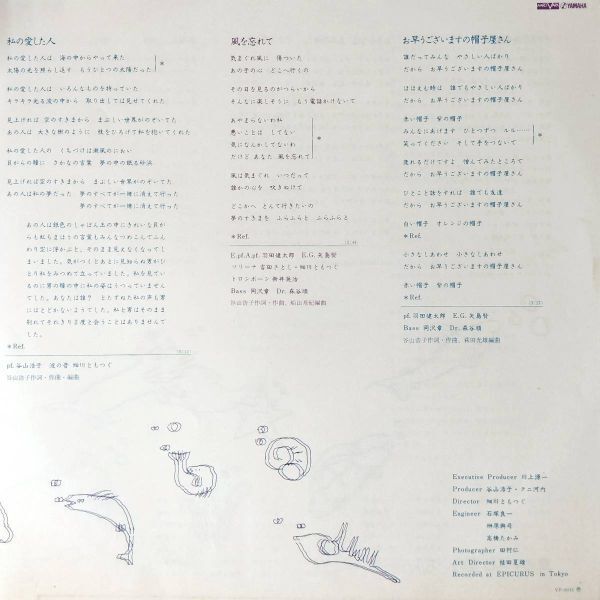 YAMAHA
私の愛した人
私の愛した人は 海の中からやって来た
太陽の光を照らし返す もうひとつの太陽だった
*
私の愛した人は いろんなものを持っていた
キラキラ光る波の中から 取り出しては見せてくれた
見上げれば空のすきまから まぶしい世界がのぞいてた
あの人は 大きな樹のように 枝をひろげて私を抱いてくれた
私の愛した人の くちづけは潮風のにおい
貝がらの瞳に さかなの言葉 夢の中の眠る砂浜
見上げれば空のすきまから まぶしい世界がのぞいてた
あの人は私の夢だった 夢のすべてが一緒に消えて行った
夢のすべてが一緒に消えて行った
あの人は銀色のしゃぼん玉の中にきれいな貝が
らも私もまほうの言葉もみんなつめこんでふん
わり空に浮かぶと、そのまま見えなくなってし
まいました。気がつくとあとに見知らぬ男がひ
とり私をみつめて立っていました。私を見てい
るのに男の瞳の中に私の姿はうつっていません
でした。あなたは誰? とたずねた私の声も男
にはとどかないようでした。私と男はそのまま
別れてそれきり2度と会うことはありませんで
した。
*Ref.
pf. 谷山浩子 波の音 細川ともつぐ
谷山浩子作詞・作曲・編曲
風を忘れて
気まぐれ風に 傷ついた
あの子の心 どこへ行くの
その日を見るのがつらいから
そんなに楽しそうに もう電話かけないで
あやまらないわ私
悪いことは してない
気になんかしてないわ
だけど あなた 風を忘れて
*
風は気まぐれ いつだって
誰かの心を 吹きぬけて
どこかへ とんで行きたいの
夢のすきまを ふらふらと ふらふらと
*Ref.
E.pf.A.pf. 羽田健太郎 E.G. 矢島賢
コリーナ 吉田さとし・細川ともつぐ
トロンボーン 新井英治
Bass 岡沢章 Dr. 森谷順
谷山浩子作詞・作曲、船山基紀編曲
お早うございますの帽子屋さん
誰だってみんな やさしい人ばかり
だから お早うございますの帽子屋さん
ほほえむ時は 誰でもやさしい人ばかり
だから お早うございますの帽子屋さん
赤い帽子 紫の帽子
みんなにあげます ひとつずつ ルル……
笑ってください そして手をつないで
*
疲れるだけですよ 憎んでみたところで
だから お早うございますの帽子屋さん
ひとこと話をすれば 誰でも友達
だから お早うございますの帽子屋さん
白い帽子 オレンジの帽子
*Ref.
小さなしあわせ 小さなしあわせ
だから お早うございますの帽子屋さん
赤い帽子 紫の帽子
*Ref.
pf. 羽田健太郎 E.G. 矢島賢
Bass 岡沢章 Dr. 森谷順
谷山浩子作詞・作曲、萩田光雄編曲
Executive Producer 川上源一
Producer 谷山浩子・クニ河内
Director 細川ともつぐ
Engineer 石塚良一
榊原興司
高橋たかみ
Photographer 田村仁
Art Director 植田夏雄
Recorded at EPICURUS in Tokyo